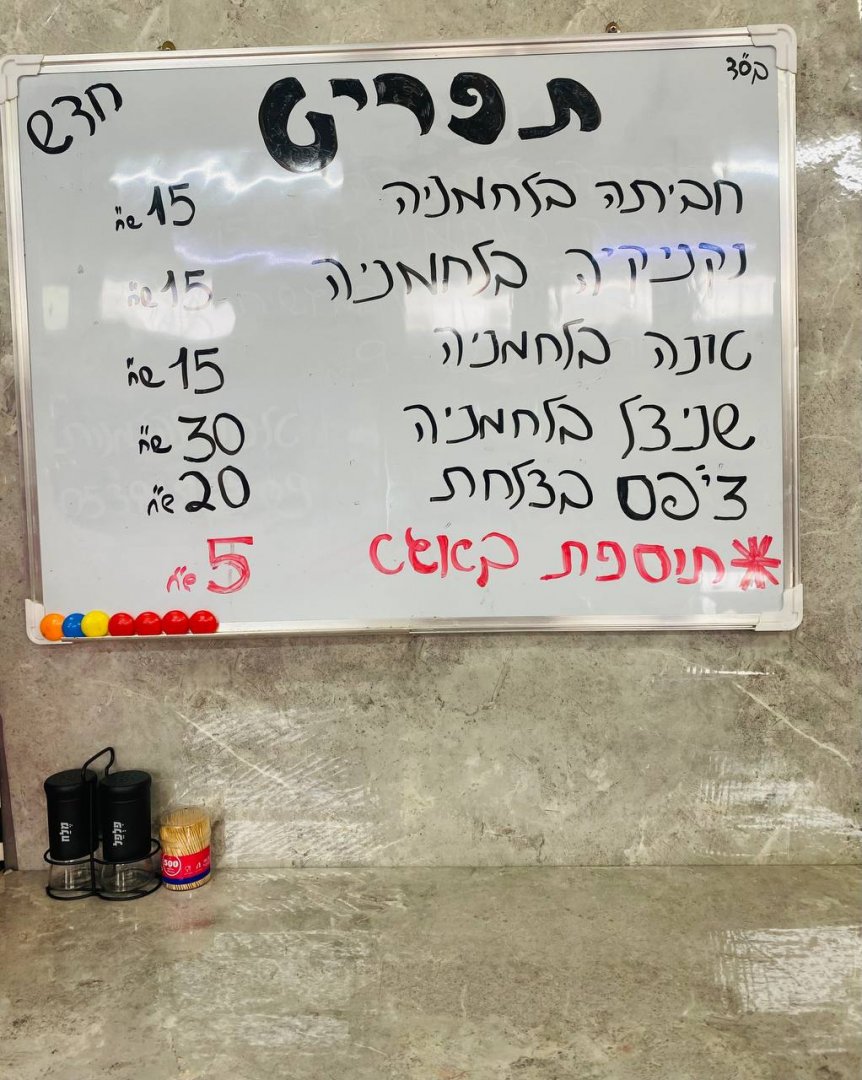 בס"ד
תפריט
חדש
חביתה בלחמניה 15 ש"ח
נקניקיה בלחמניה 15 ש"ח
טונה בלחמניה 15 ש"ח
שניצל בלחמניה 30 ש"ח
צ'יפס בצלחת 20 ש"ח
*תוספת באגט 5 ש"ח
מלח
פלפל
500